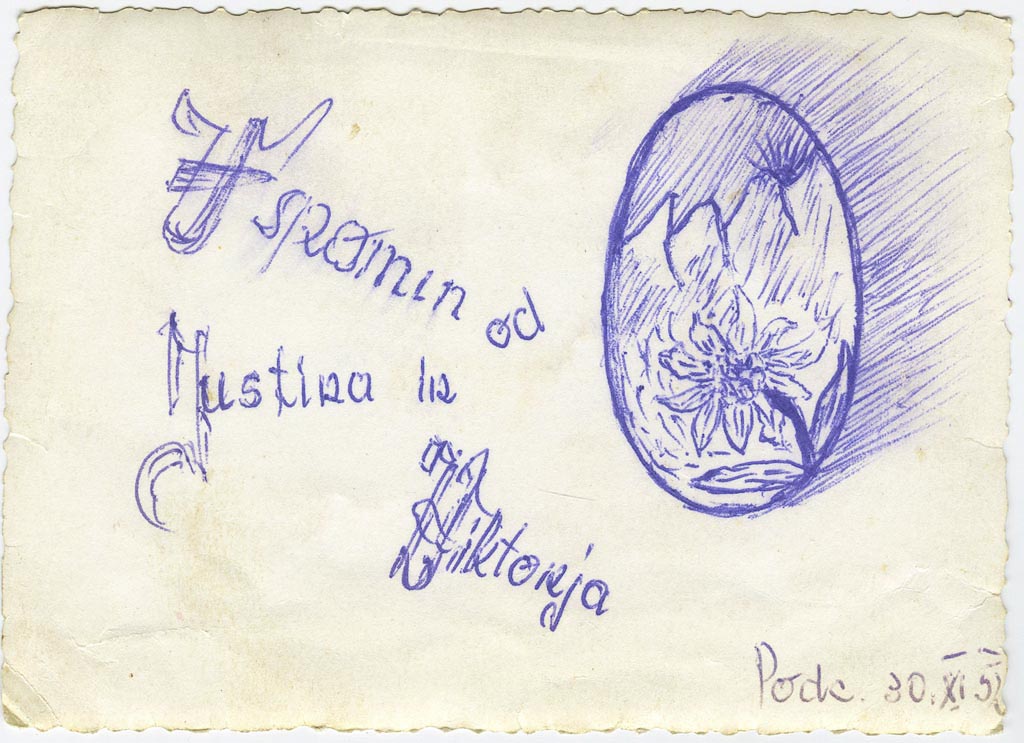 V spomin od
Justina in
Viktorja
Podc. 30. XI 52